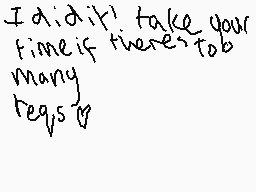 I did it! take your
time if theres too
many
reqs ♡